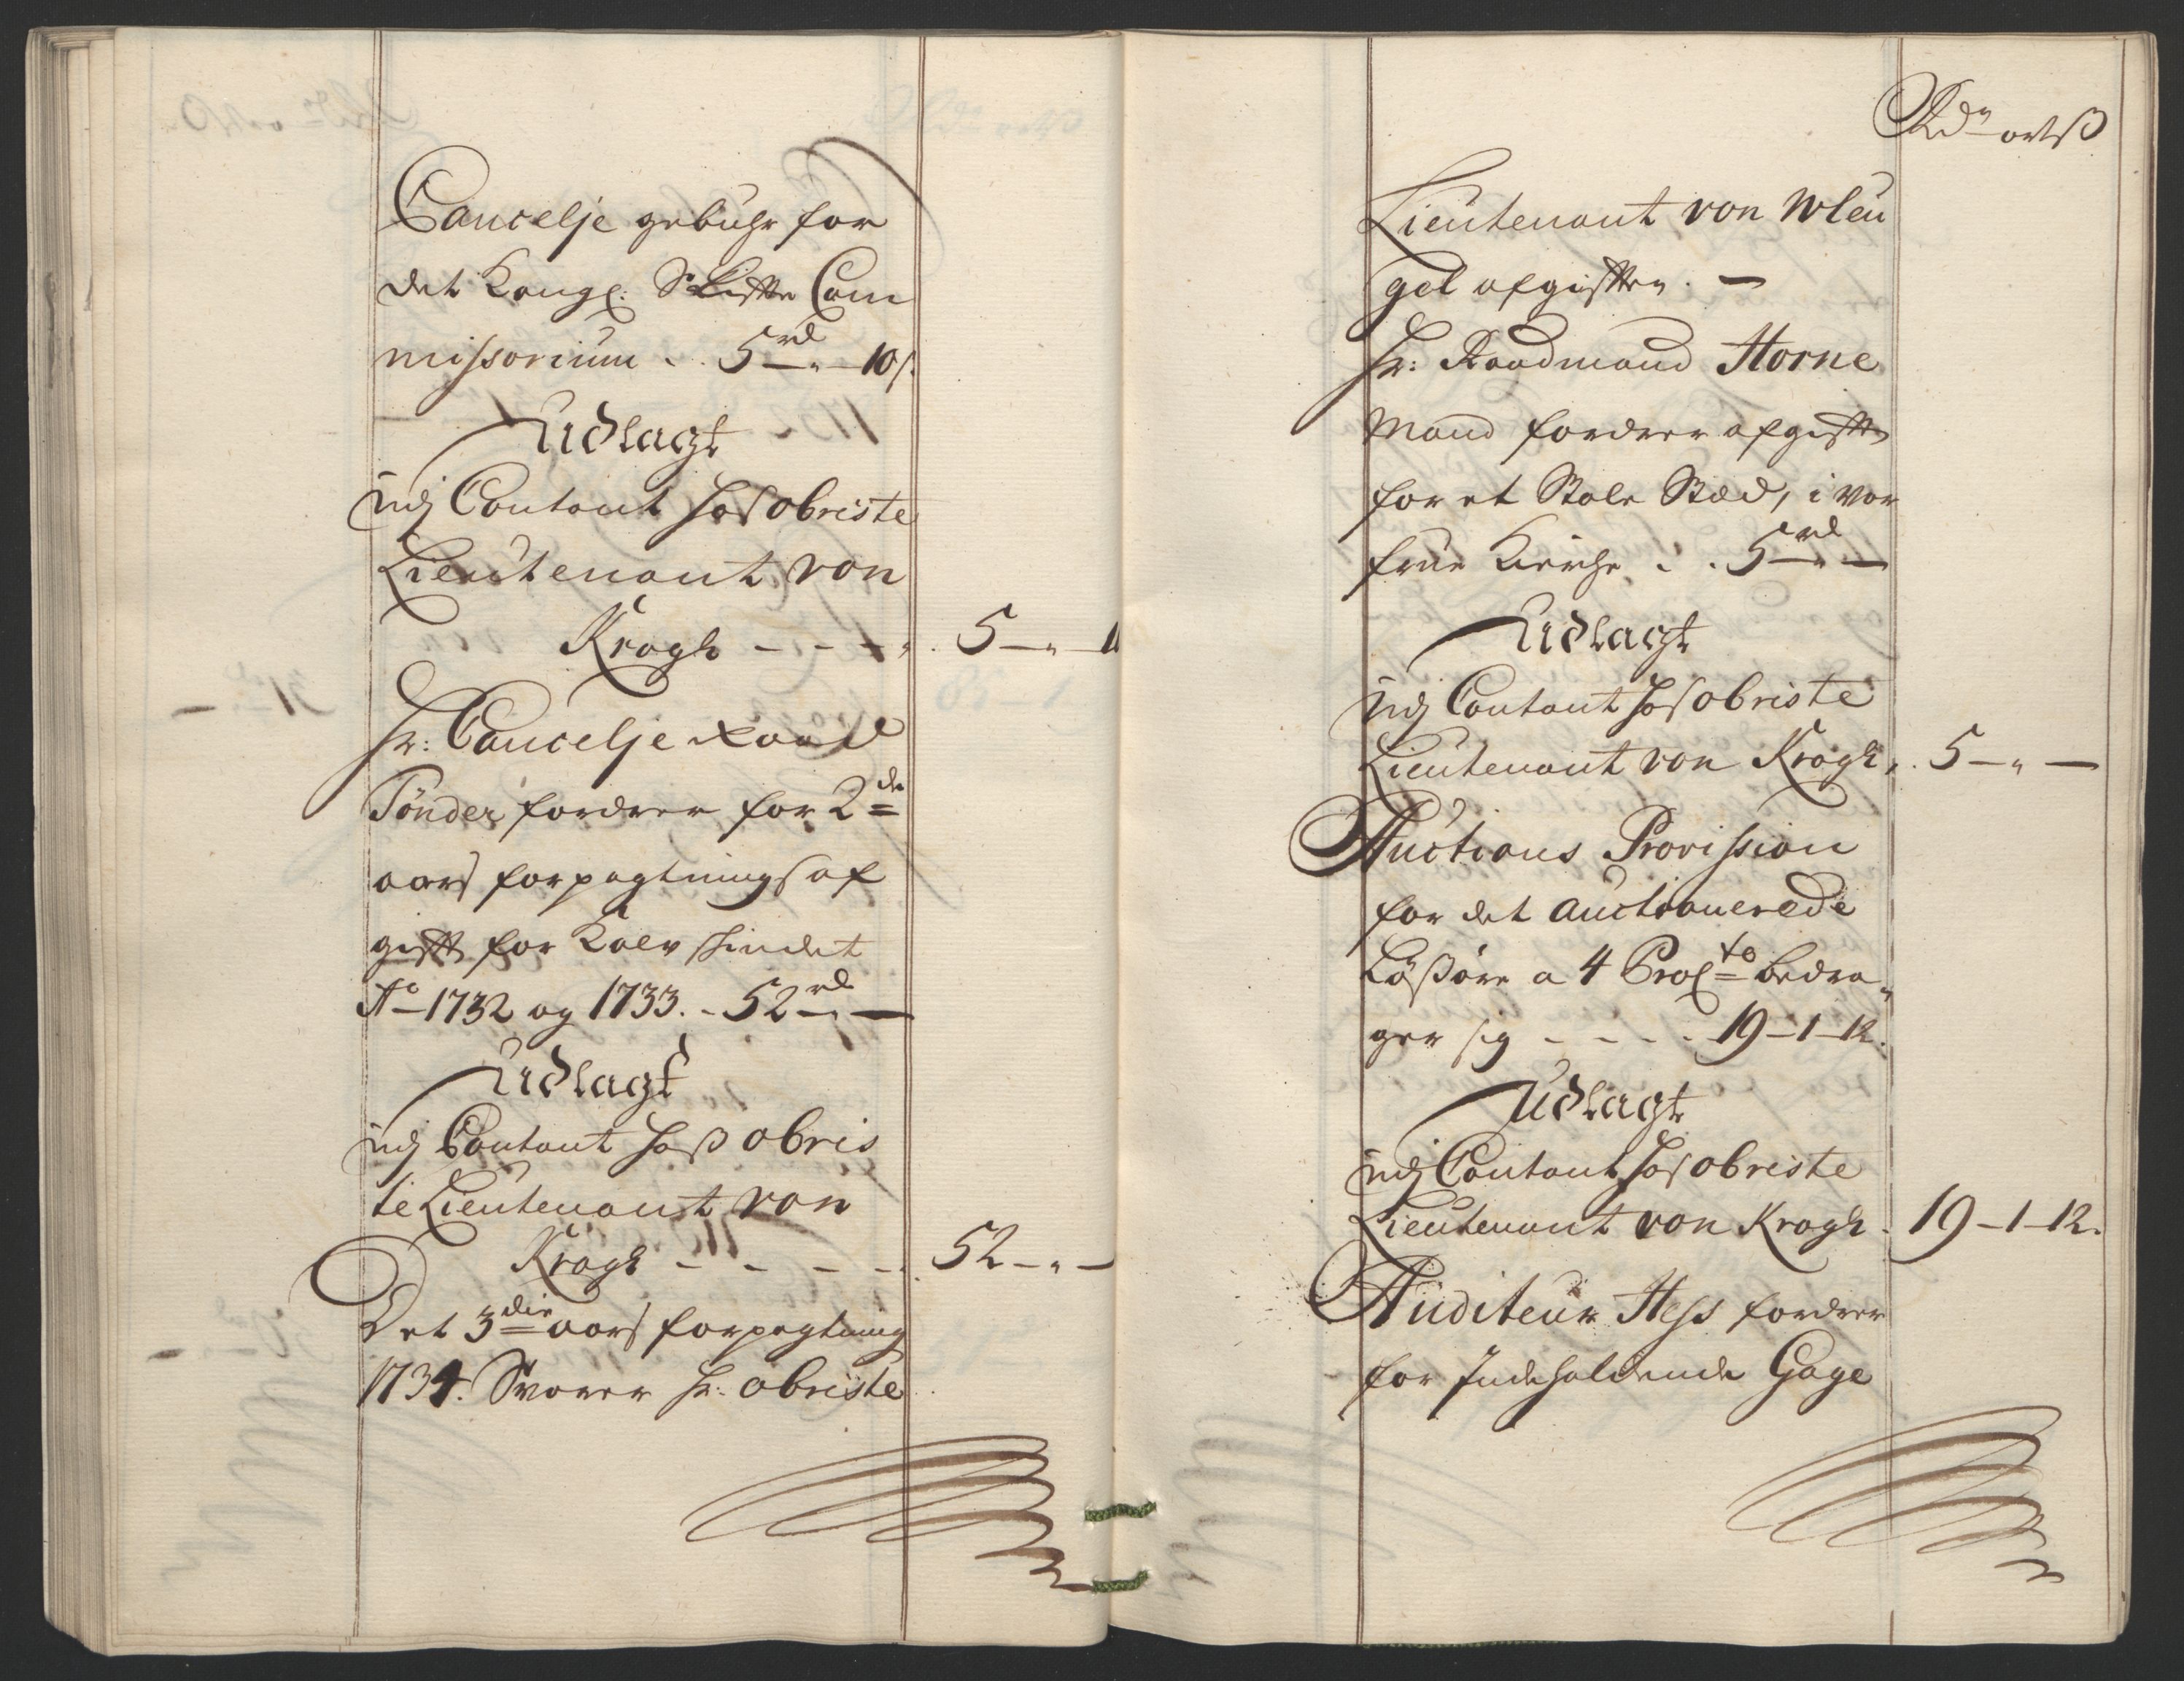 Cancelje gebühr for
det Kongl: Skifte Com
missorium .. 5 rd „ 10 s.
Üdlagt
udj Contant hos obriste
Lieutenant von
Krogh - - - - 5 — „ — 1
Hr: Cancelje Raad
Tönder fordrer for 2de
aars forpagtnings af
gift for Kalv skindet
Ao 1732 og 1733. - 52 rd „ —
Üdlagt
udj Contant hoß obris
te Lieutenant von
Krogh - - - - 52 — „ —
Det 3die aars forpagtning
1734. Svarer Hr: obriste
Rdr ort ß
Lieutenant von Wleu
gel afgiften. —
Hr: Raadmand Horne
mand fordrer afgift
for et Stole Stæd, i vor
frue Kirche .. 5 rd „ —
Üdlagt
udj Contant hos obriste
Lieutenant von Krogh. 5 — „ —
Auctions Provission
for det auctionerede
Løßøre a 4 Procto bedra-
ger sig - - - - 19 - 1 - 12.
Üdlagt
udj Contant hos obriste
Lieutenant von Krogh. 19 - 1 - 12.
Auditeur Hess fordrer
for Indeholdende Gage